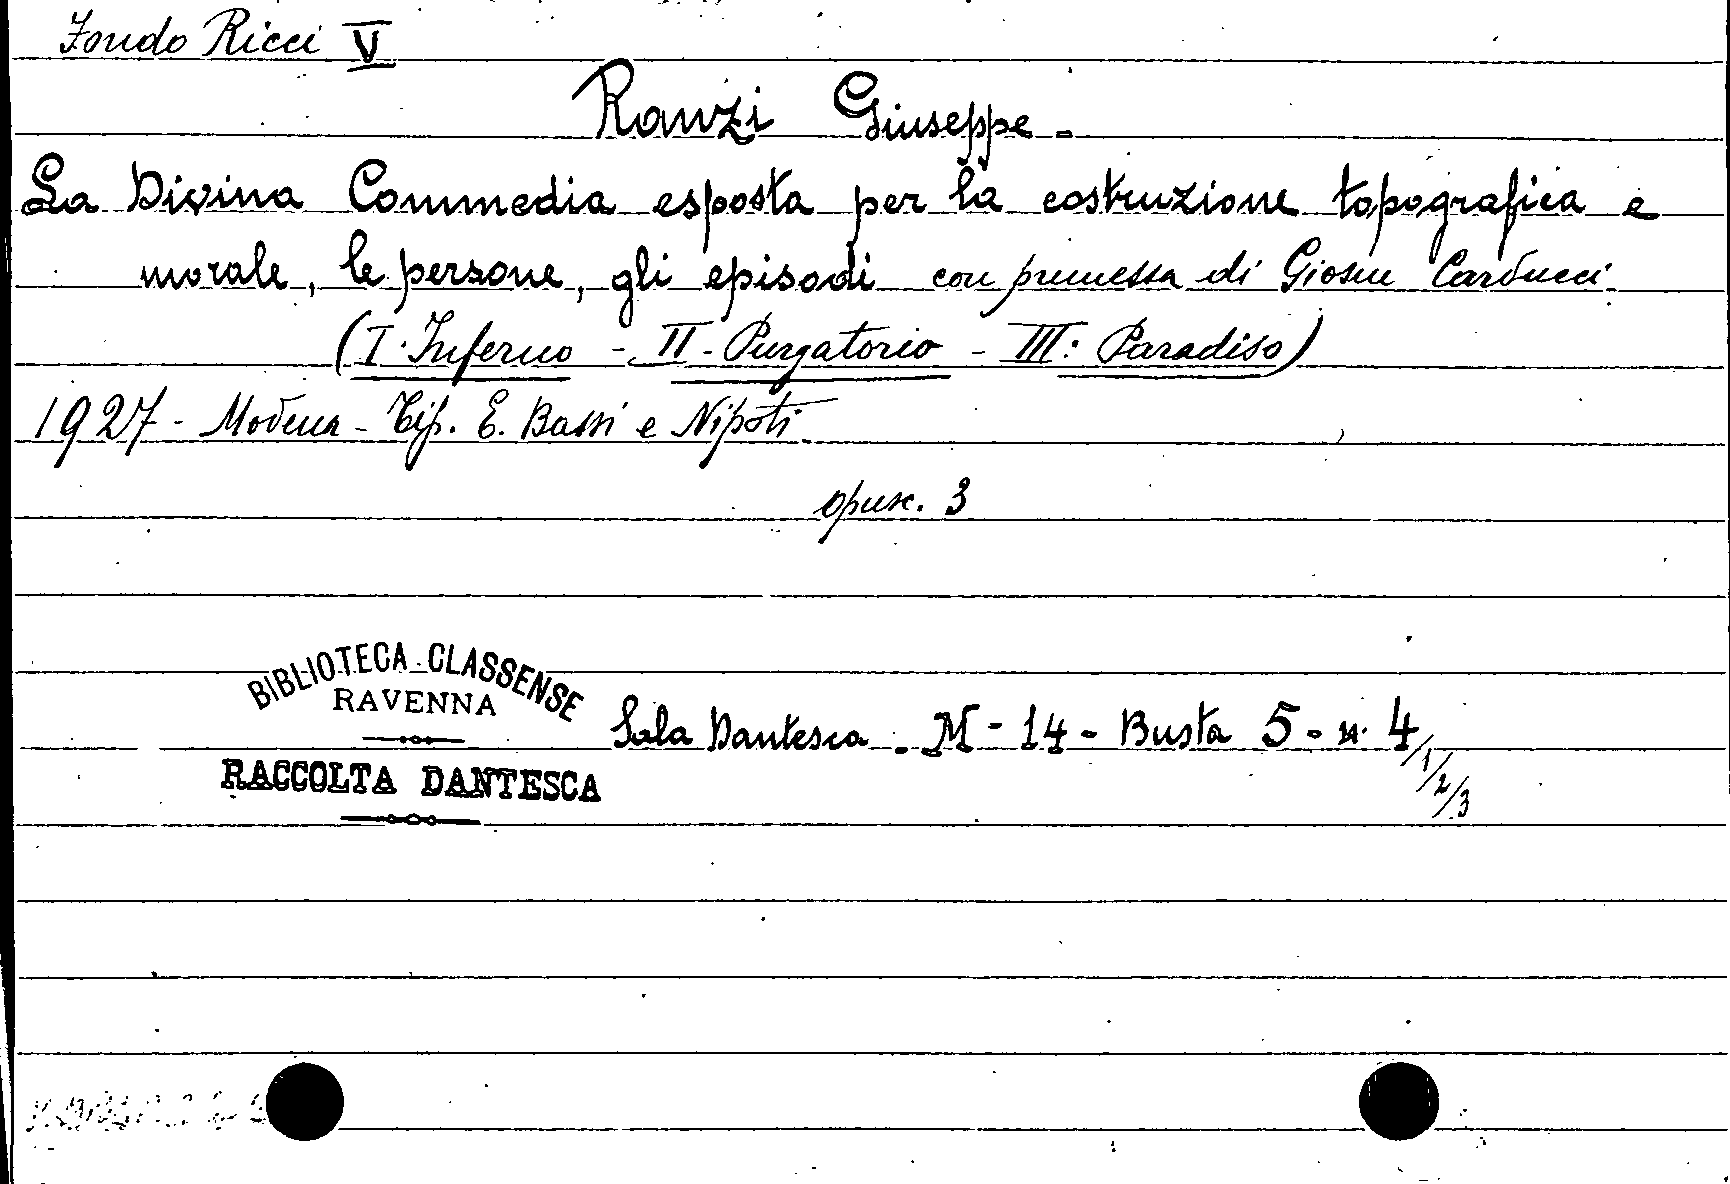 Fondo Ricci V
Ranzi Giuseppe -
La Divina Commedia esposta per la costruzione topografica e
morale, le persone, gli episodi con premessa di Giosue Carducci.
(I. Inferno - II - Purgatorio - III: Paradiso)
1927 - Modena - Tip. E. Bassi e Nipoti
opusc. 3
BIBLIOTECA CLASSENSE
RAVENNA
RACCOLTA DANTESCA
Sala Dantesca - M - 14 - Busta 5 - n. 4/1/2/3